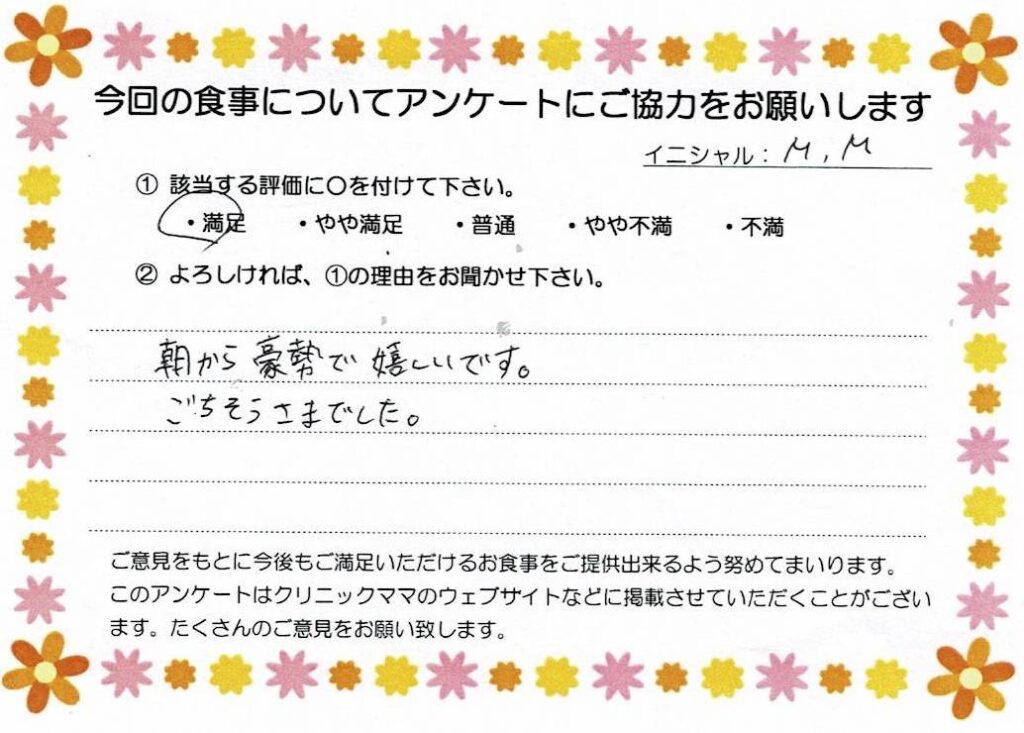 今回の食事についてアンケートにご協力をお願いします
イニシャル：M，M
① 該当する評価に〇を付けて下さい。
・満足 ・やや満足 ・普通 ・やや不満 ・不満
② よろしければ、①の理由をお聞かせ下さい。
朝から豪勢で嬉しいです。
ごちそうさまでした。
ご意見をもとに今後もご満足いただけるお食事をご提供出来るよう努めてまいります。
このアンケートはクリニックママのウェブサイトなどに掲載させていただくことがござい
ます。たくさんのご意見をお願い致します。